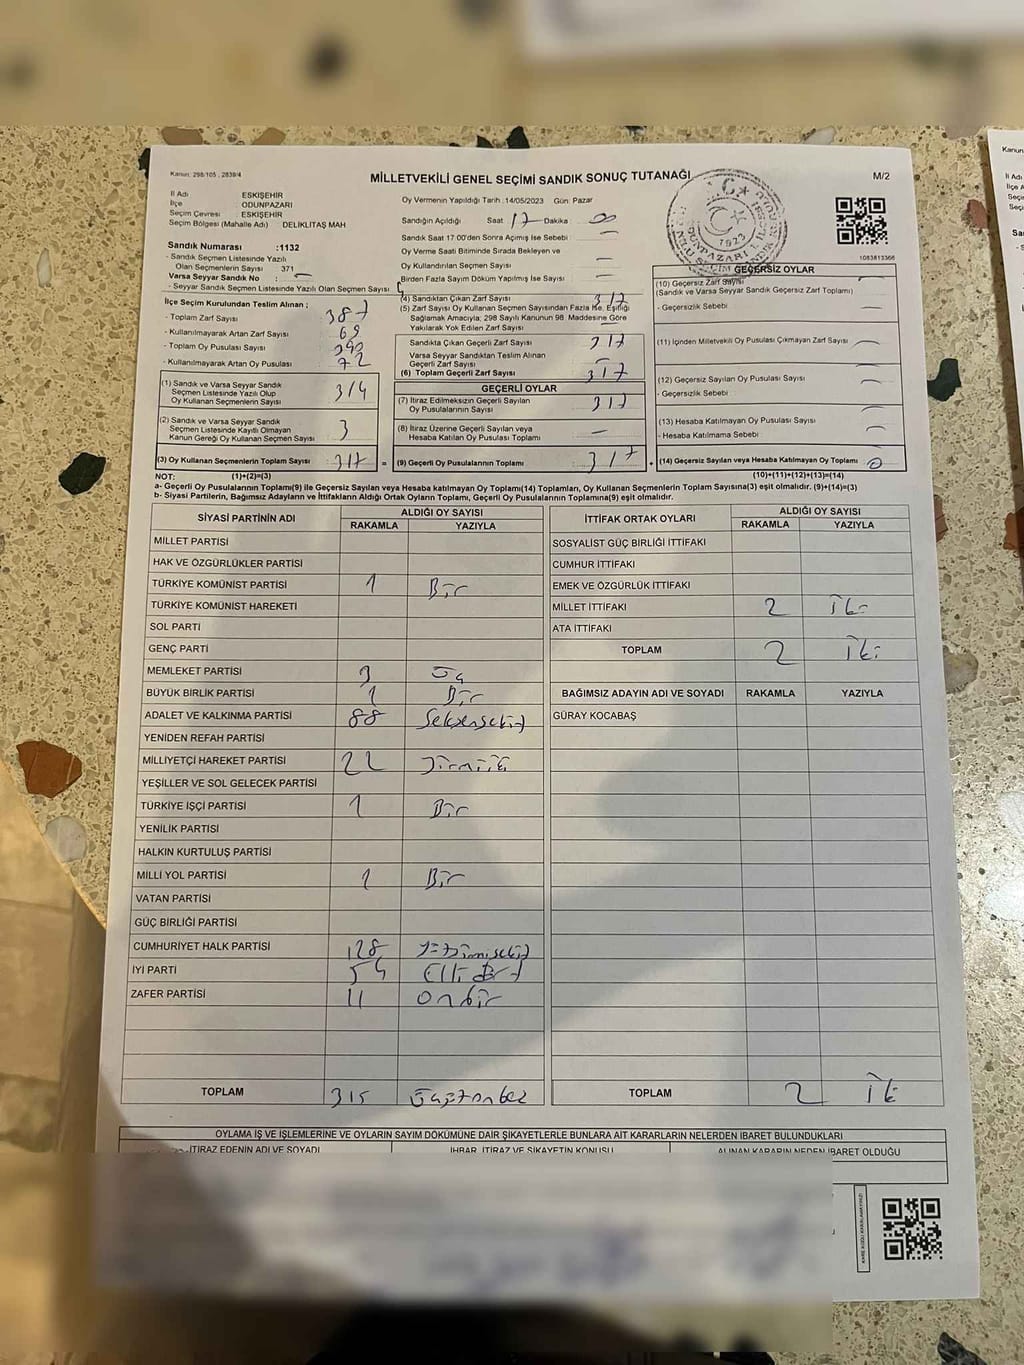 Kanun: 298/105 , 2839/4
MİLLETVEKİLİ GENEL SEÇİMİ SANDIK SONUÇ TUTANAĞI
M/2
İl Adı ESKİŞEHİR
İlçe ODUNPAZARI
Seçim Çevresi: ESKİŞEHİR
Seçim Bölgesi (Mahalle Adı) DELİKLİTAŞ MAH
Sandık Numarası :1132
- Sandık Seçmen Listesinde Yazılı
Olan Seçmenlerin Sayısı 371
Varsa Seyyar Sandık No : —
- Seyyar Sandık Seçmen Listesinde Yazılı Olan Seçmen Sayısı
Oy Vermenin Yapıldığı Tarih : 14/05/2023 Gün: Pazar
Sandığın Açıldığı Saat 17 Dakika : 00
Sandık Saat 17:00'den Sonra Açılmış İse Sebebi : —
Oy Verme Saati Bitiminde Sırada Bekleyen ve
Oy Kullandırılan Seçmen Sayısı —
Birden Fazla Sayım Döküm Yapılmış İse Sayısı —
1923
1083813366
İlçe Seçim Kurulundan Teslim Alınan ;
- Toplam Zarf Sayısı 387
- Kullanılmayarak Artan Zarf Sayısı 69
- Toplam Oy Pusulası Sayısı 390
- Kullanılmayarak Artan Oy Pusulası 72
(1) Sandık ve Varsa Seyyar Sandık
Seçmen Listesinde Yazılı Olup
Oy Kullanan Seçmenlerin Sayısı 314
(2) Sandık ve Varsa Seyyar Sandık
Seçmen Listesinde Kayıtlı Olmayan
Kanun Gereği Oy Kullanan Seçmen Sayısı 3
(3) Oy Kullanan Seçmenlerin Toplam Sayısı 317 =
(4) Sandıktan Çıkan Zarf Sayısı 317
(5) Zarf Sayısı Oy Kullanan Seçmen Sayısından Fazla İse, Eşitliği
Sağlamak Amacıyla; 298 Sayılı Kanunun 98. Maddesine Göre
Yakılarak Yok Edilen Zarf Sayısı —
Sandıkta Çıkan Geçerli Zarf Sayısı 317
Varsa Seyyar Sandıktan Teslim Alınan
Geçerli Zarf Sayısı —
(6) Toplam Geçerli Zarf Sayısı 317
GEÇERLİ OYLAR
(7) İtiraz Edilmeksizin Geçerli Sayılan
Oy Pusulalarının Sayısı 317
(8) İtiraz Üzerine Geçerli Sayılan veya
Hesaba Katılan Oy Pusulası Toplamı —
(9) Geçerli Oy Pusulalarının Toplamı 317 +
GEÇERSİZ OYLAR
(10) Geçersiz Zarf Sayısı
(Sandık ve Varsa Seyyar Sandık Geçersiz Zarf Toplamı)
- Geçersizlik Sebebi
(11) İçinden Milletvekili Oy Pusulası Çıkmayan Zarf Sayısı —
(12) Geçersiz Sayılan Oy Pusulası Sayısı —
- Geçersizlik Sebebi —
(13) Hesaba Katılmayan Oy Pusulası Sayısı —
- Hesaba Katılmama Sebebi —
(14) Geçersiz Sayılan veya Hesaba Katılmayan Oy Toplamı 0
NOT: (1)+(2)=(3) (10)+(11)+(12)+(13)=(14)
a- Geçerli Oy Pusulalarının Toplamı(9) ile Geçersiz Sayılan veya Hesaba katılmayan Oy Toplamı(14) Toplamları, Oy Kullanan Seçmenlerin Toplam Sayısına(3) eşit olmalıdır. (9)+(14)=(3)
b- Siyasi Partilerin, Bağımsız Adayların ve İttifakların Aldığı Ortak Oyların Toplamı, Geçerli Oy Pusulalarının Toplamına(9) eşit olmalıdır.
SİYASİ PARTİNİN ADI ALDIĞI OY SAYISI
RAKAMLA YAZIYLA
MİLLET PARTİSİ
HAK VE ÖZGÜRLÜKLER PARTİSİ
TÜRKİYE KOMÜNİST PARTİSİ 1 Bir
TÜRKİYE KOMÜNİST HAREKETİ
SOL PARTİ
GENÇ PARTİ
MEMLEKET PARTİSİ 3 Üç
BÜYÜK BİRLİK PARTİSİ 1 Bir
ADALET VE KALKINMA PARTİSİ 88 Seksensekiz
YENİDEN REFAH PARTİSİ
MİLLİYETÇİ HAREKET PARTİSİ 22 Yirmiiki
YEŞİLLER VE SOL GELECEK PARTİSİ
TÜRKİYE İŞÇİ PARTİSİ 1 Bir
YENİLİK PARTİSİ
HALKIN KURTULUŞ PARTİSİ
MİLLİ YOL PARTİSİ 1 Bir
VATAN PARTİSİ
GÜÇ BİRLİĞİ PARTİSİ
CUMHURİYET HALK PARTİSİ 128 Yüzyirmisekiz
İYİ PARTİ 59
ZAFER PARTİSİ 11 Onbir
TOPLAM 315 Üçyüzonbeş
İTTİFAK ORTAK OYLARI ALDIĞI OY SAYISI
RAKAMLA YAZIYLA
SOSYALİST GÜÇ BİRLİĞİ İTTİFAKI
CUMHUR İTTİFAKI
EMEK VE ÖZGÜRLÜK İTTİFAKI
MİLLET İTTİFAKI 2 İki
ATA İTTİFAKI
TOPLAM 2 İki
BAĞIMSIZ ADAYIN ADI VE SOYADI RAKAMLA YAZIYLA
GÜRAY KOCABAŞ
TOPLAM 2 İki
OYLAMA İŞ VE İŞLEMLERİNE VE OYLARIN SAYIM DÖKÜMÜNE DAİR ŞİKAYETLERLE BUNLARA AİT KARARLARIN NELERDEN İBARET BULUNDUKLARI
İTİRAZ EDENİN ADI VE SOYADI İHBAR, İTİRAZ VE ŞİKAYETİN KONUSU ALINAN KARARIN NEDEN İBARET OLDUĞU